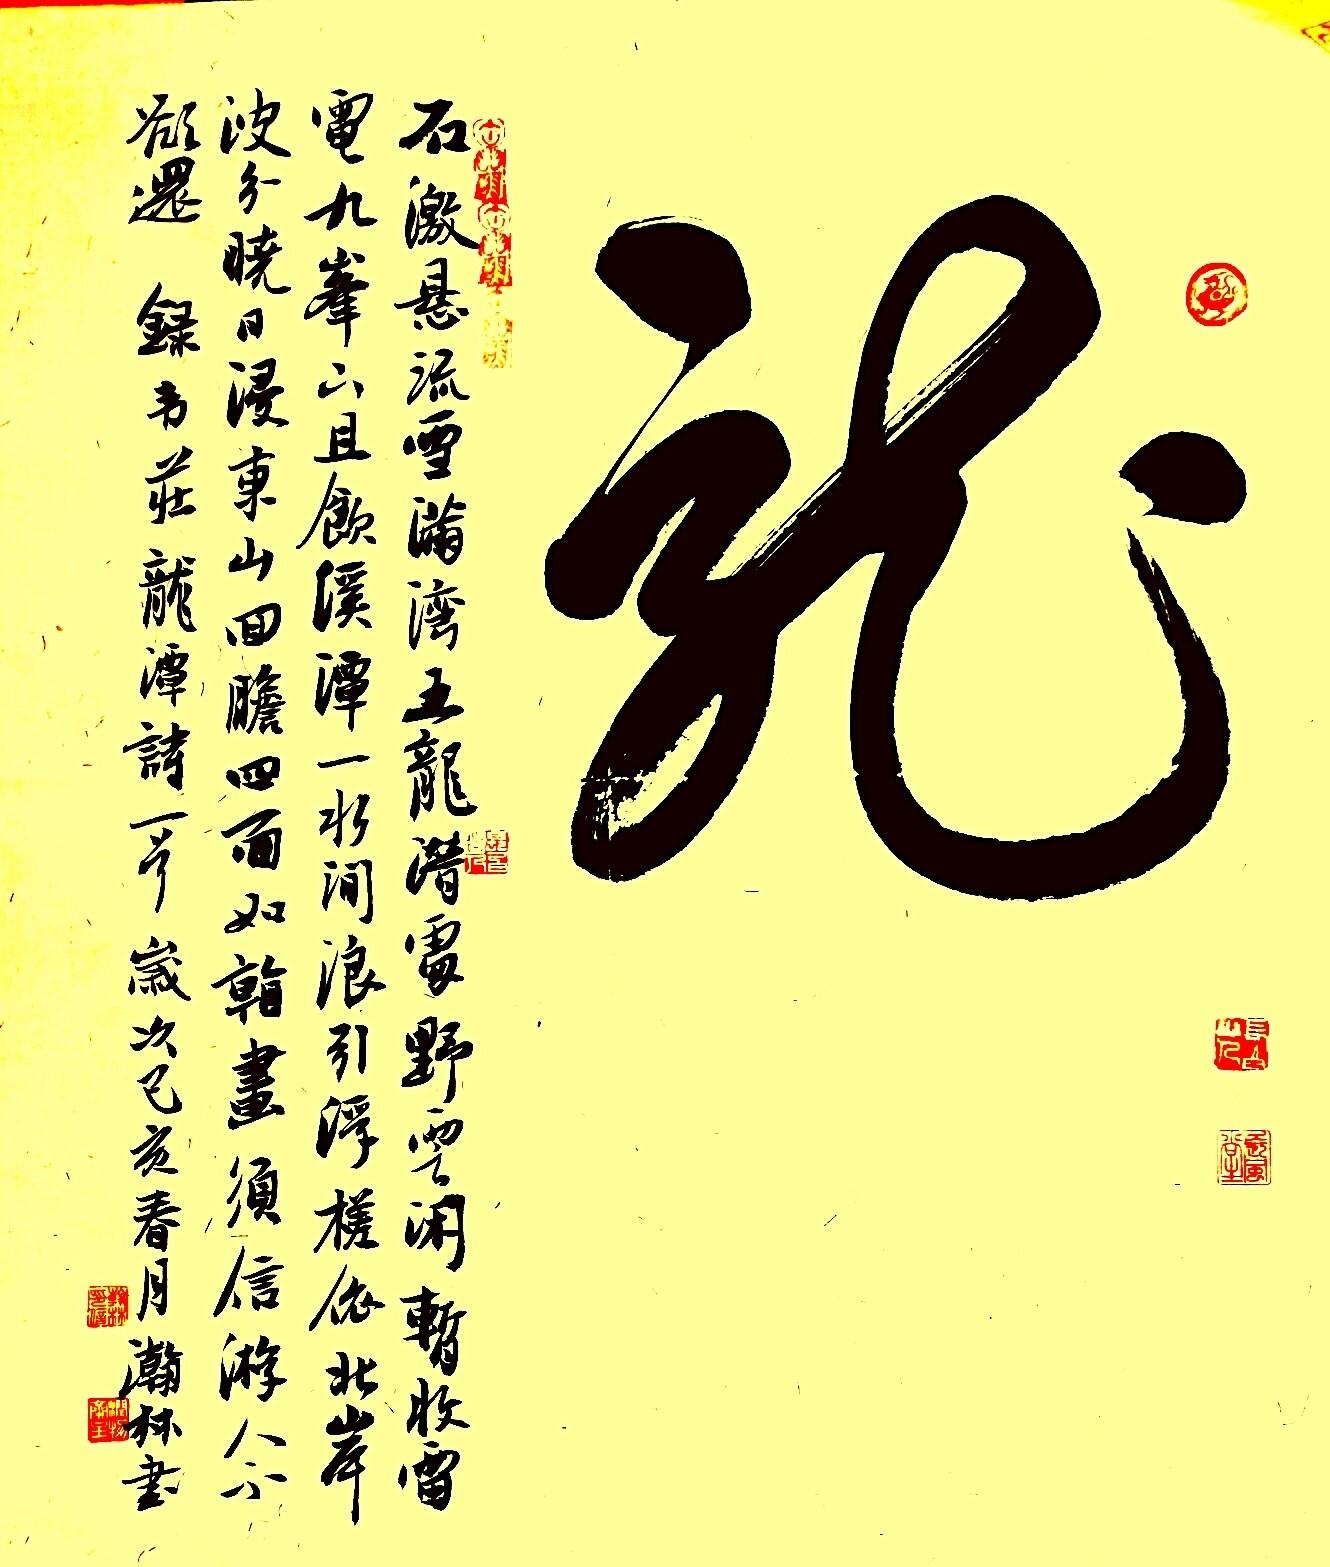 龍
石激悬流雪滿湾五龍潛處野雲闲暫收雷
電九峯下且飲溪潭一水间浪引浮槎依北岸
波分曉日浸東山回瞻四面如看畫須信游人不
欲還 録韦莊龍潭詩一首 歲次己亥春月瀚林書